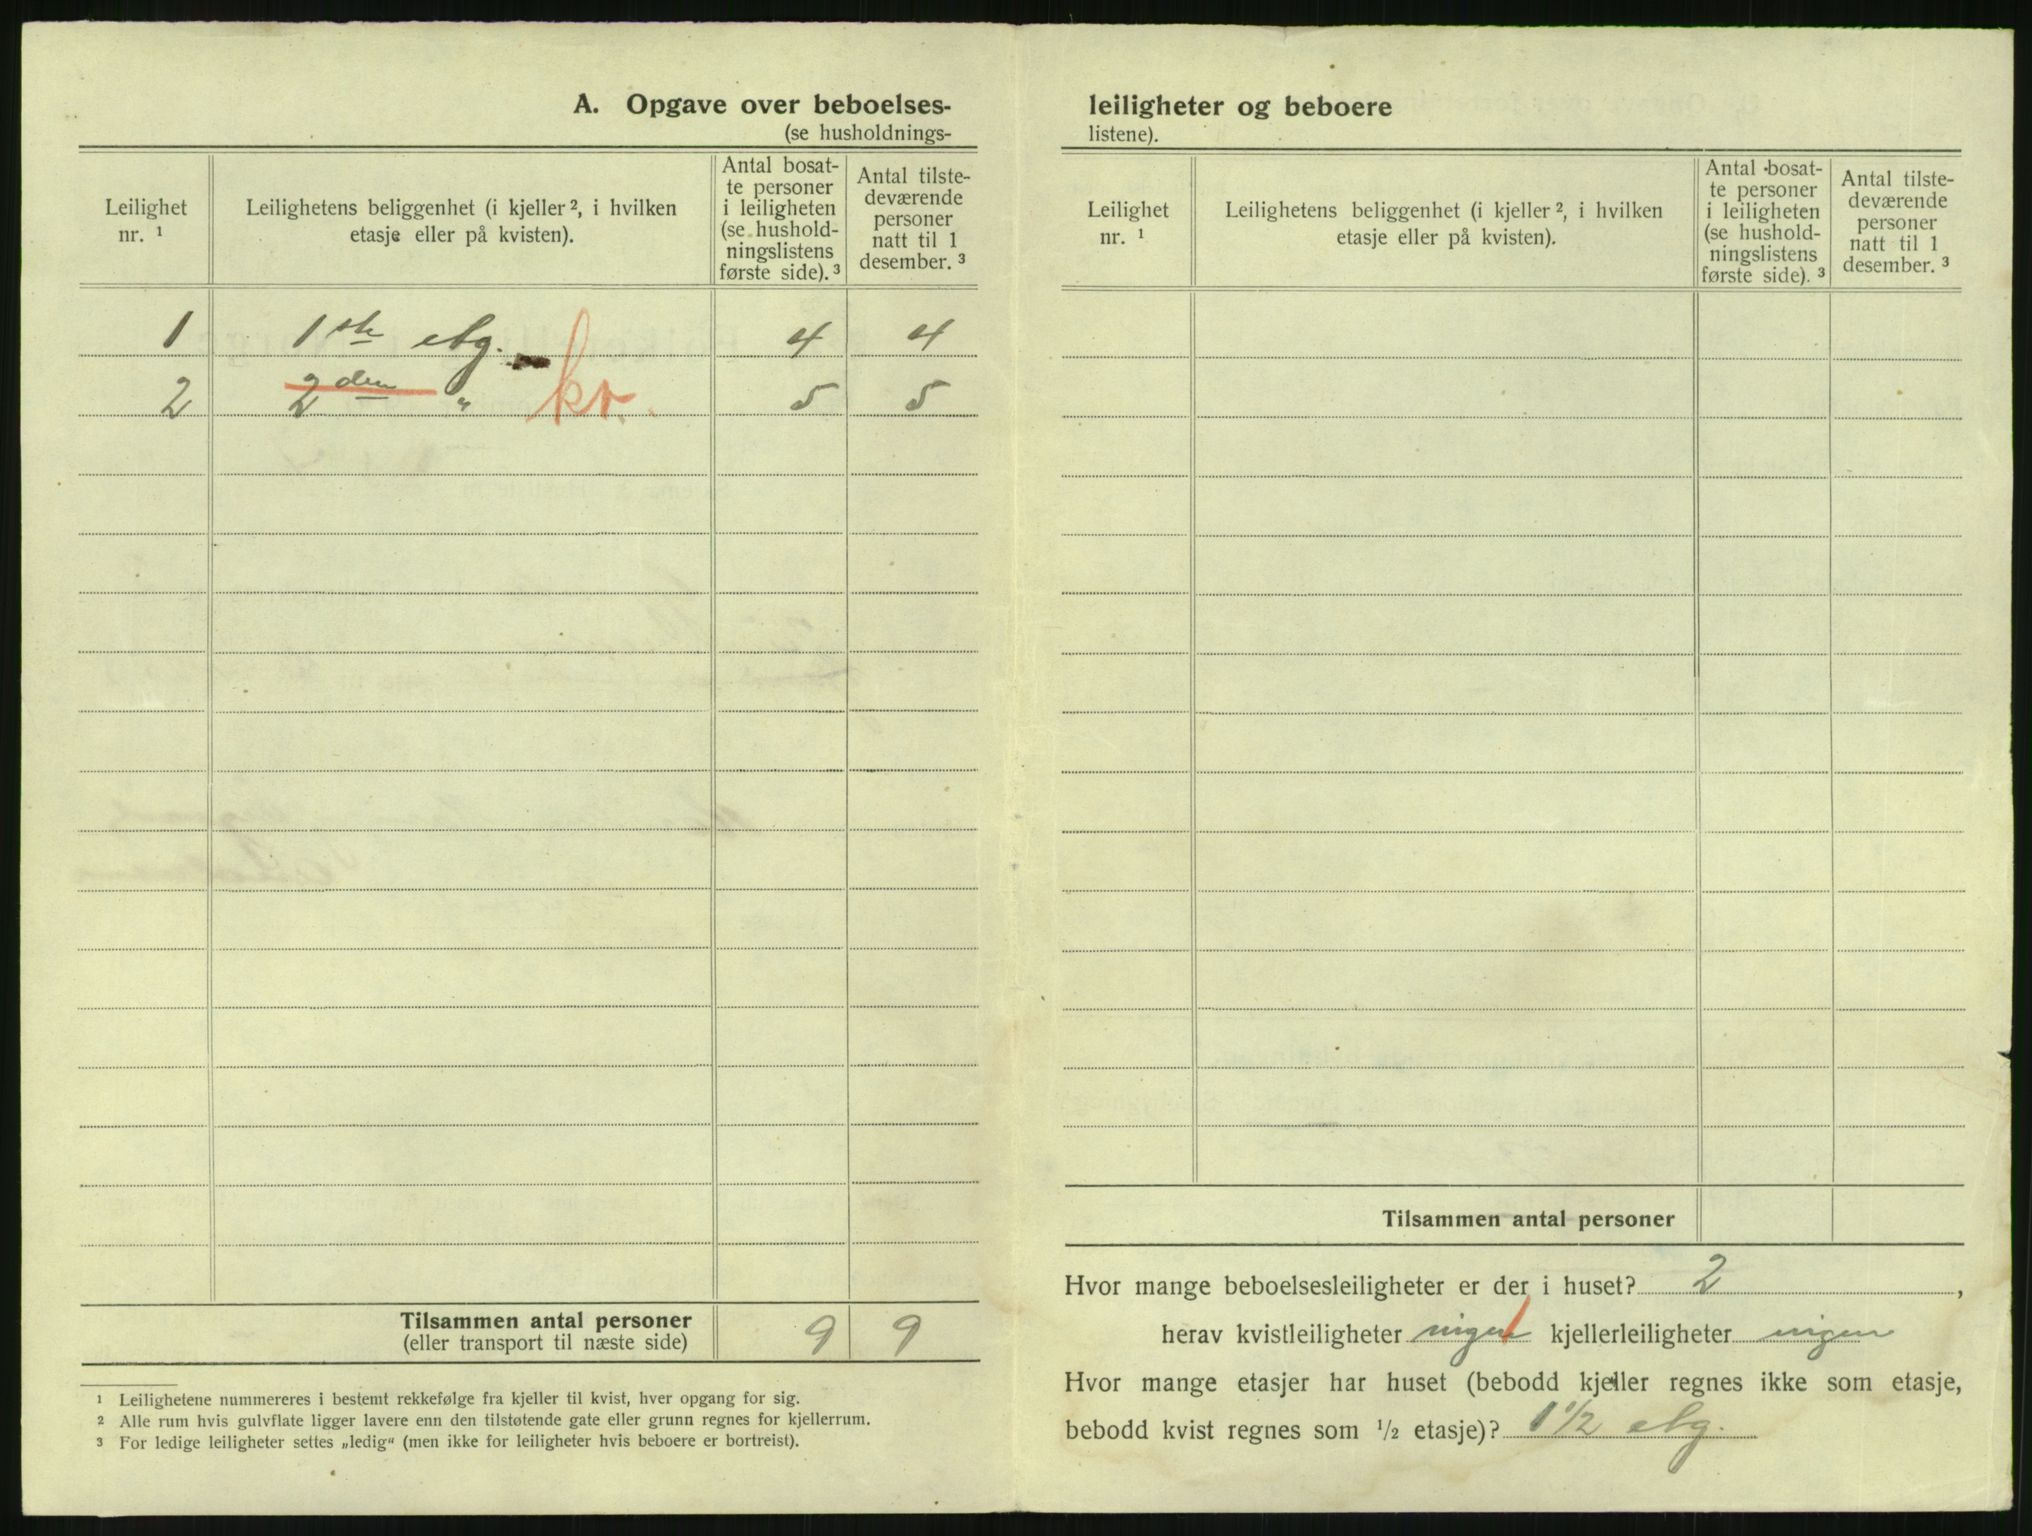 A. Opgave over beboelses-
(se husholdnings-
Leilighet
nr. ¹
Leilighetens beliggenhet (i kjeller ², i hvilken
etasje eller på kvisten).
Antal bosat-
te personer
i leiligheten
(se hushold-
ningslistens
første side). ³
Antal tilste-
deværende
personer
natt til 1
desember. ³
1 1ste etg. 4 4
2 2den " kv. 5 5
Tilsammen antal personer 9 9
(eller transport til næste side)
¹ Leilighetene nummereres i bestemt rekkefølge fra kjeller til kvist, hver opgang for sig.
² Alle rum hvis gulvflate ligger lavere enn den tilstøtende gate eller grunn regnes for kjellerrum.
³ For ledige leiligheter settes „ledig" (men ikke for leiligheter hvis beboere er bortreist).
leiligheter og beboere
listene).
Leilighet
nr. ¹
Leilighetens beliggenhet (i kjeller ², i hvilken
etasje eller på kvisten).
Antal bosat-
te personer
i leiligheten
(se hushold-
ningslistens
første side). ³
Antal tilste-
deværende
personer
natt til 1
desember. ³
Tilsammen antal personer
Hvor mange beboelsesleiligheter er der i huset? 2 ,
herav kvistleiligheter ingen 1 kjellerleiligheter ingen
Hvor mange etasjer har huset (bebodd kjeller regnes ikke som etasje,
bebodd kvist regnes som ½ etasje)? 1 ½ etg.